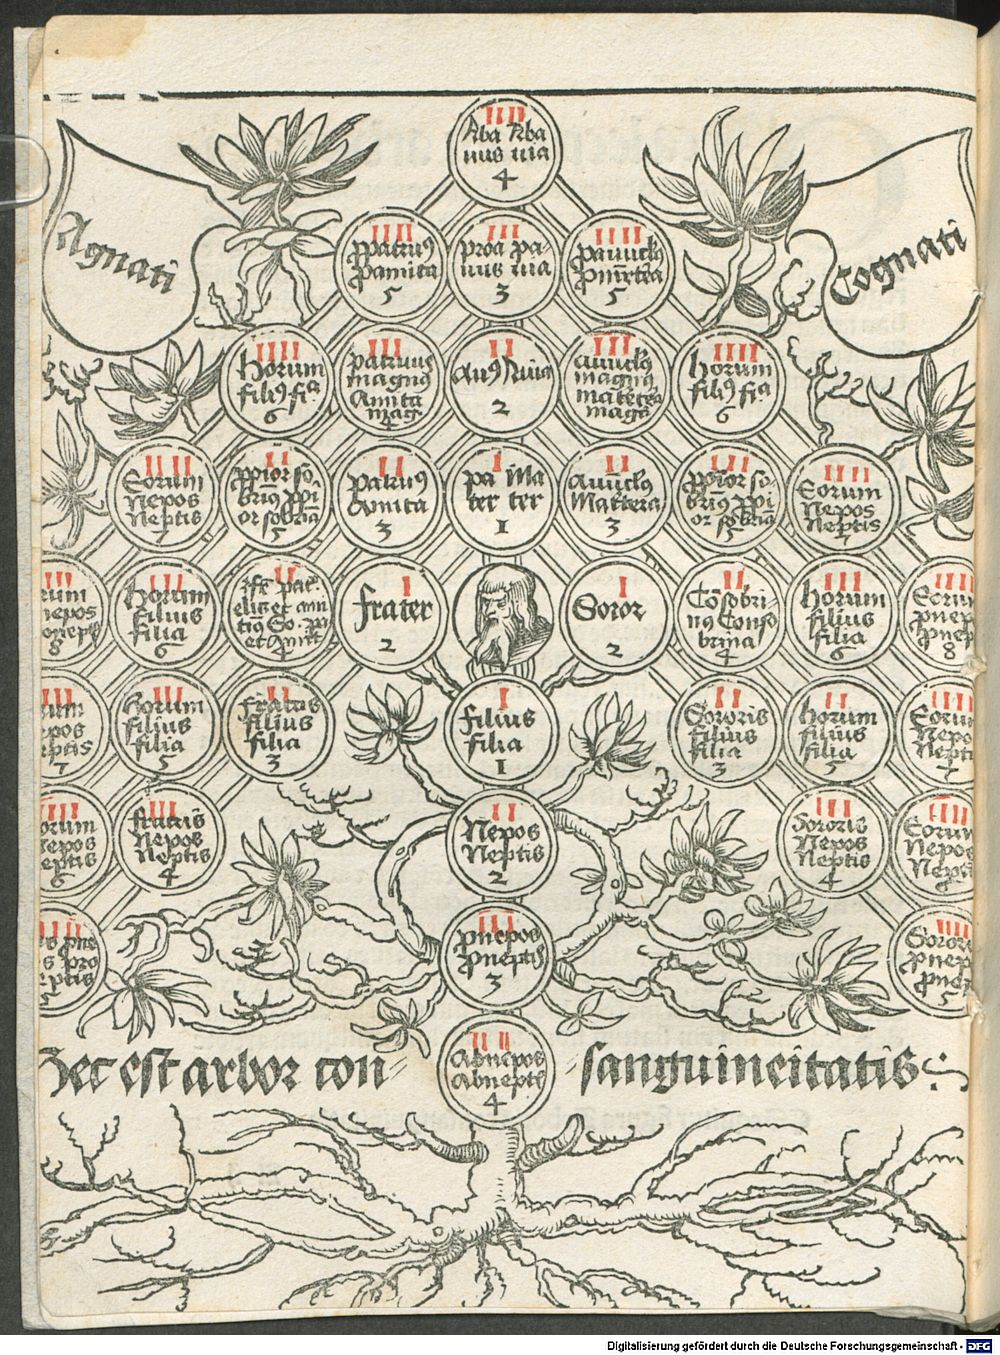 IIII
Aba Aba
uus uia
4
Agnati
Cognati
IIII
ꝓpatruꝰ
ꝓpamita
5
III
proa pa-
uus uia
3
IIII
ꝓauuclꝰ
ꝓmr̄tera
5
IIII
Horum
filiꝰ fia
6
III
patruus
magnꝰ
Amita
mag
4
II
Auꝰ Auia
2
III
Auuclꝰ
magnꝰ
matetea
maga
IIII
Horum
filiꝰ fia
6
IIII
Eorum
Nepos
Neptis
7
III
ꝓpior so
brinꝰ ꝓpi
or sobrīa
5
II
patruꝰ
Amita
3
I
pa Ma
ter ter
1
II
Auuclꝰ
Mattera
3
III
ꝓpior so-
brinꝰ ꝓpi
or sobrīa
5
IIII
Eorum
Nepos
Neptis
7
III
rum
nepos
onepꝰ
8
III
Horum
filius
filia
6
II
I
frater
2
I
Soror
2
II
Cōsobri-
nꝰ Conso
brina
4
III
Horum
filius
filia
6
IIII
Eorum
pnepo
pnep
8
III
pos
ptis
7
III
Horum
filius
filia
5
II
fratris
filius
filia
3
I
filius
filia
1
II
Sororis
filius
filia
3
II
horum
filius
filia
5
IIII
Eorum
Nepo
Nepti
7
IIII
orum
epos
eptis
6
III
fratris
Nepos
Neptis
4
II
Nepos
Neptis
2
III
Sororis
Nepos
Neptis
4
III
Eorum
Nepos
Neptis
6
IIII
is pne
s pro
ptis
5
III
pnepos
ꝓneptis
3
IIII
Sorori
ꝓnep
pnep
5
Hec est arbor con-
IIII
Abnepos
Abneptis
4
-sanguineitatis:
Digitalisierung gefördert durch die Deutsche Forschungsgemeinschaft - DFG